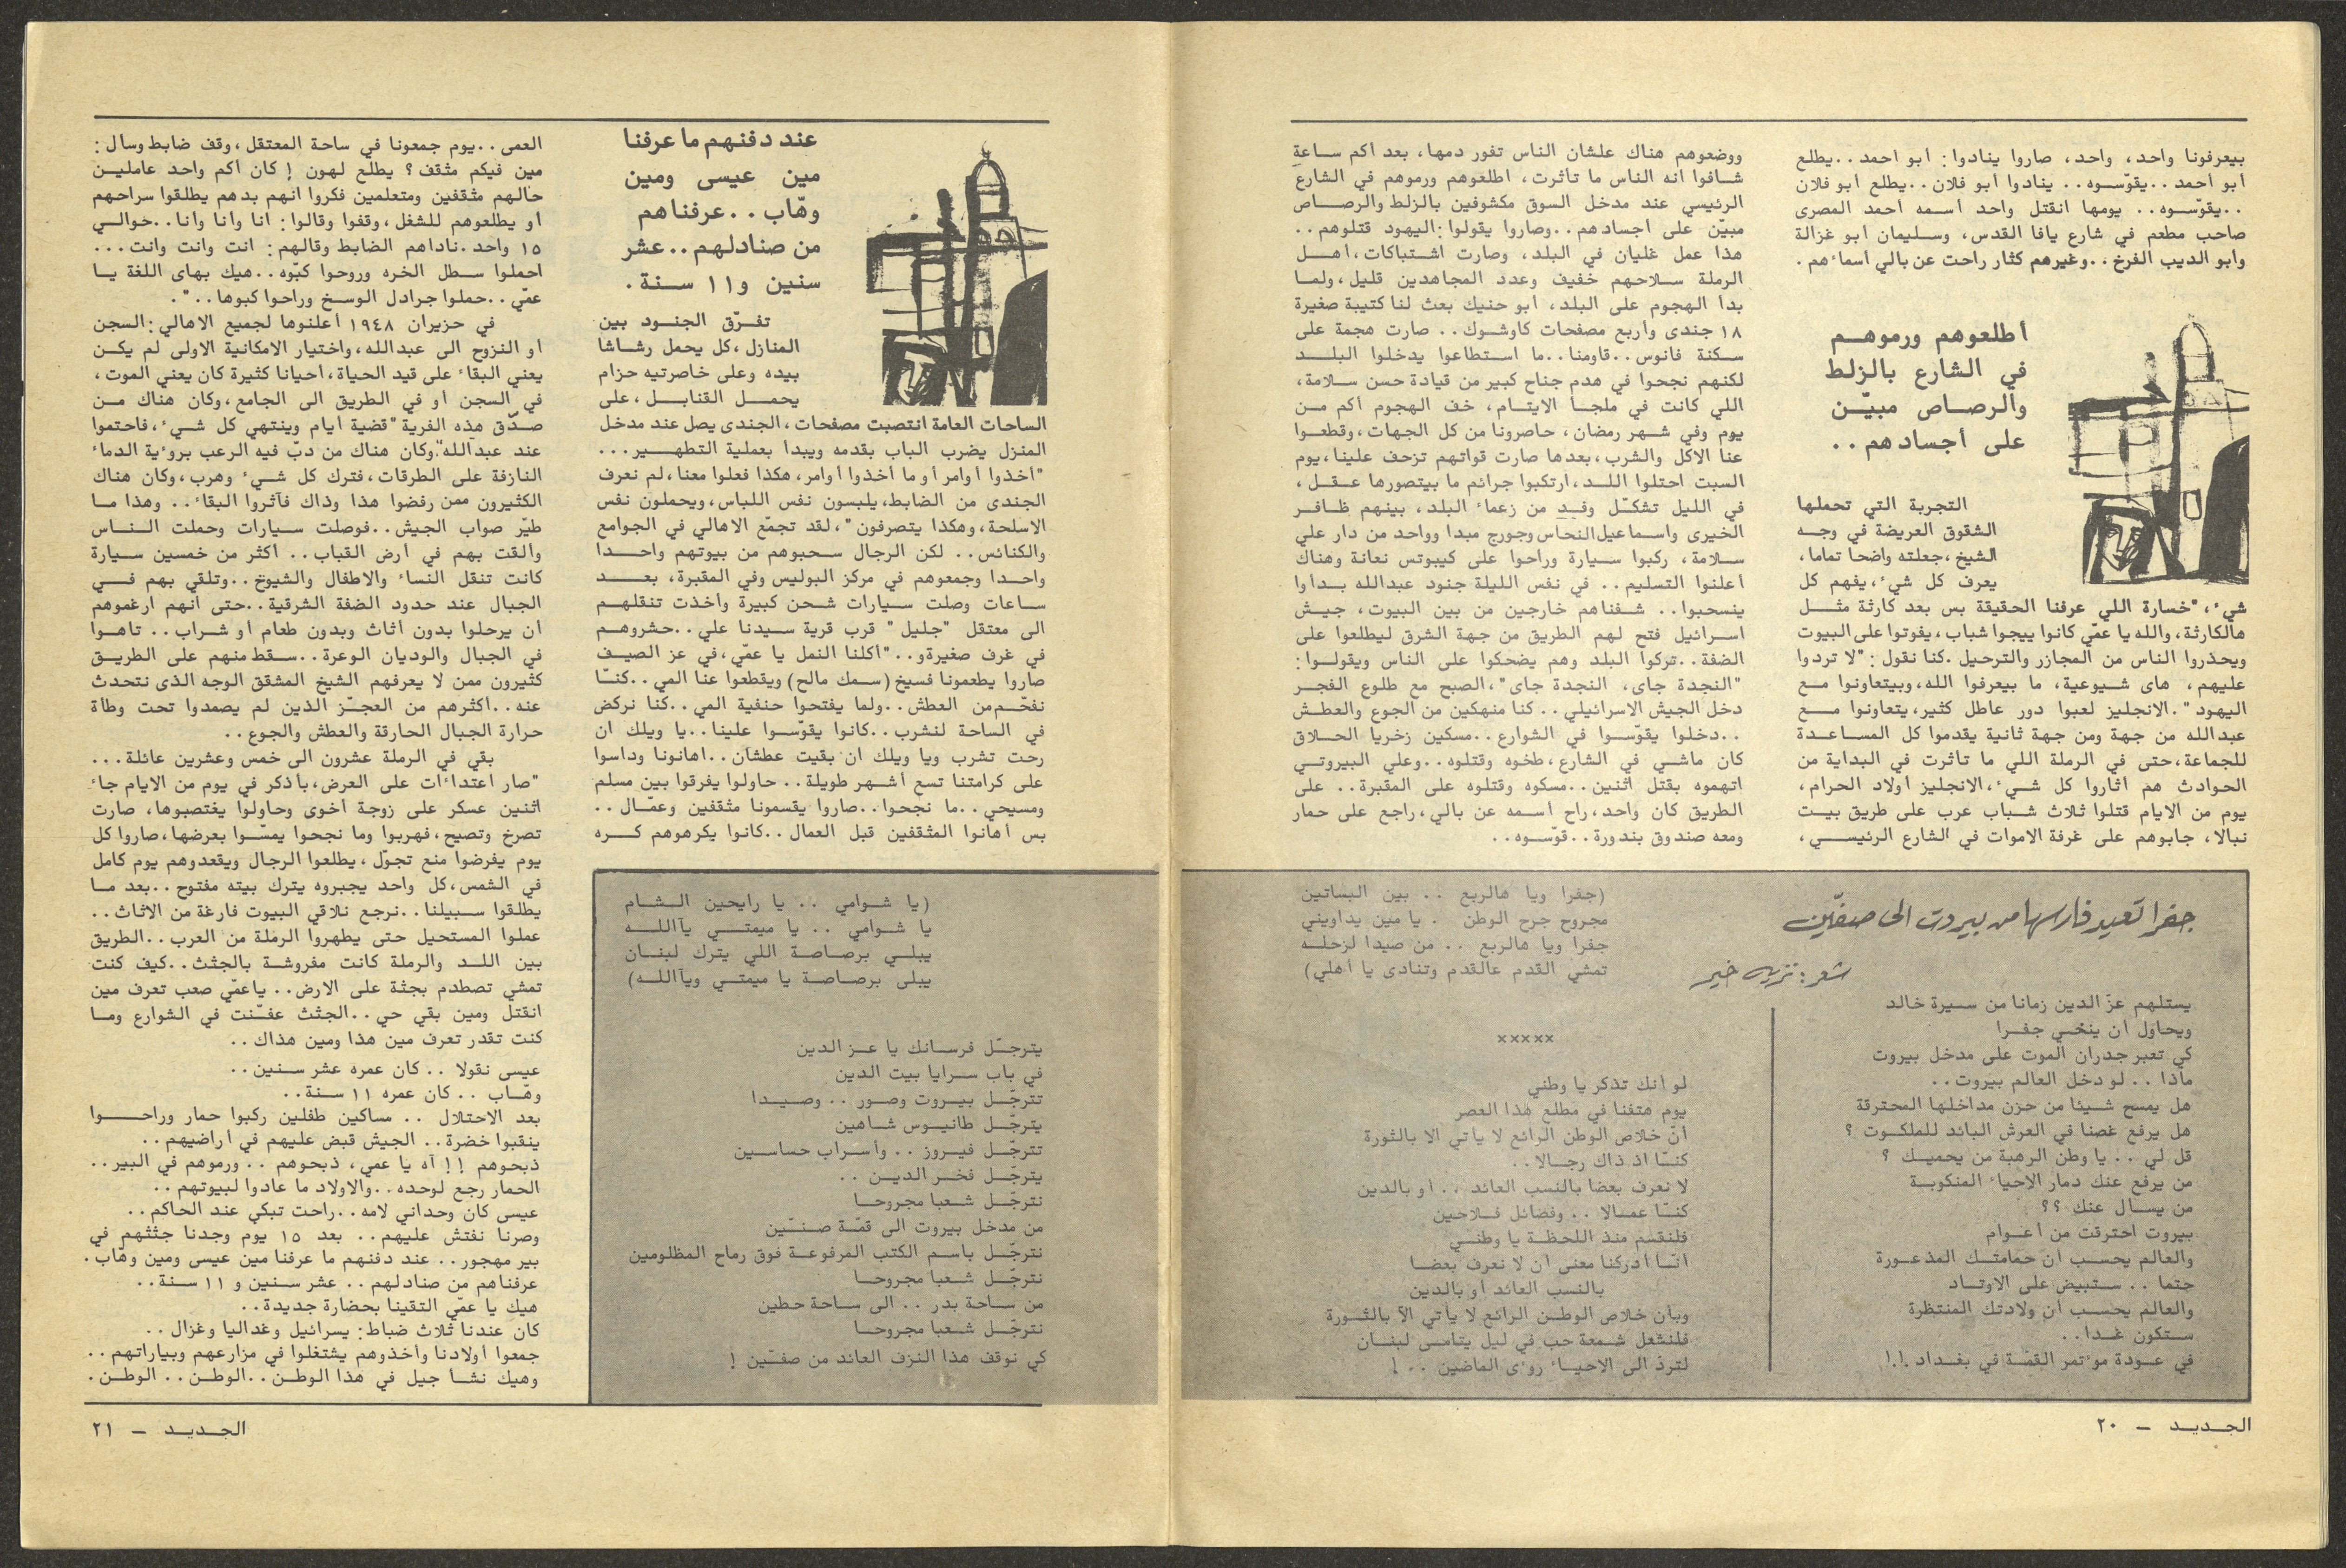 بيعرفونا واحد، واحد، صاروا ينادوا: أبو أحمد..يطلع
أبو أحمد..يقوّسوه.. ينادوا أبو فلان..يطلع أبو فلان
..يقوّسوه.. يومها انقتل واحد أسمه أحمد المصرى
صاحب مطعم في شارع يافا القدس، وسليمان أبو غزالة
وأبو الديب الفرخ..وغيرهم كثار راحت عن بالي أسماءهم.
أطلعوهم ورموهم
في الشارع بالزلط
والرصاص مبيّن
على أجسادهم..
التجربة التي تحملها
الشقوق العريضة في وجه
الشيخ،جعلته واضحا تماما،
يعرف كل شيء،يفهم كل
شيء،"خسارة اللي عرفنا الحقيقة بس بعد كارثة مثل
هالكارثة،والله يا عمّي كانوا ييجوا شباب،يفوتوا على البيوت
ويحذروا الناس من المجازر والترحيل.كنا نقول:"لا تردوا
عليهم، هاى شيوعية، ما بيعرفوا الله،وبيتعاونوا مع
اليهود".الانجليز لعبوا دور عاطل كثير،يتعاونوا مع
عبدالله من جهة ومن جهة ثانية يقدموا كل المساعدة
للجماعة،حتى في الرملة اللي ما تأثرت في البداية من
الحوادث هم أثاروا كل شيء،الانجليز أولاد الحرام،
يوم من الايام قتلوا ثلاث شباب عرب على طريق بيت
نبالا، جابوهم على غرفة الاموات في الشارع الرئيسي،
ووضعوهم هناك علشان الناس تفور دمها، بعد أكم ساعة
شافوا انه الناس ما تأثرت، أطلعوهم ورموهم في الشارع
الرئيسي عند مدخل السوق مكشوفين بالزلط والرصاص
مبيّن على أجسادهم..وصاروا يقولوا:اليهود قتلوهم..
هذا عمل غليان في البلد، وصارت اشتباكات،أهل
الرملة سلاحهم خفيف وعدد المجاهدين قليل،ولما
بدأ الهجوم على البلد، أبو حنيك بعث لنا كتيبة صغيرة
١٨ جندى وأربع مصفحات كاوشوك.. صارت هجمة على
سكنة فانوس..قاومنا..ما استطاعوا يدخلوا البلد
لكنهم نجحوا في هدم جناح كبير من قيادة حسن سلامة،
اللي كانت في ملجأ الايتام، خف الهجوم أكم من
يوم وفي شهر رمضان، حاصرونا من كل الجهات،وقطعوا
عنا الاكل والشرب،بعدها صارت قواتهم تزحف علينا،يوم
السبت احتلوا اللد،ارتكبوا جرائم ما بيتصورها عقل،
في الليل تشكّل وفد من زعماء البلد، بينهم ظافر
الخيرى واسماعيل النحاس وجورج مبدا وواحد من دار علي
سلامة، ركبوا سيارة وراحوا على كيبوتس نعانة وهناك
أعلنوا التسليم.. في نفس الليلة جنود عبدالله بدأوا
ينسحبوا.. شفناهم خارجين من بين البيوت، جيش
اسرائيل فتح لهم الطريق من جهة الشرق ليطلعوا على
الضفة..تركوا البلد وهم يضحكوا على الناس ويقولوا:
"النجدة جاى، النجدة جاى"،الصبح مع طلوع الفجر
دخل الجيش الاسرائيلي..كنا منهكين من الجوع والعطش
..دخلوا يقوّسوا في الشوارع..مسكين زخريا الحلاق
كان ماشي في الشارع،طخوه وقتلوه..وعلي البيروتي
اتهموه بقتل اثنين..مسكوه وقتلوه على المقبرة.. على
الطريق كان واحد،راح أسمه عن بالي،راجع على حمار
ومعه صندوق بندورة..قوّسوه..
جفرا تعيد فارسها من بيروت الى صفّين
شعر: نزيه خير
يستلهم عزّ الدين زمانا من سيرة خالد
ويحاول أن ينخّي جفرا
كي تعبر جدران الموت على مدخل بيروت
ماذا .. لو دخل العالم بيروت..
هل يمسح شيئا من حزن مداخلها المحترقة
هل يرفع غصنا في العرش البائد للملكوت ؟
قل لي .. يا وطن الرهبة من يحميك ؟
من يرفع عنك دمار الاحياء المنكوبة
من يسأل عنك ؟؟
بيروت احترقت من أعوام
والعالم يحسب أن حمامتك المذعورة
حتما .. ستبيض على الاوتاد
والعالم يحسب أن ولادتك المنتظرة
ستكون غدا..
في عودة موءتمر القمّة في بغداد !!
(جفرا ويا هالربع .. بين البساتين
مجروح جرح الوطن . يا مين يداويني
جفرا ويا هالربع .. من صيدا لزحله
تمشي القدم عالقدم وتنادى يا أهلي)
×××××
لو أنك تذكر يا وطني
يوم هتفنا في مطلع هذا العصر
أنّ خلاص الوطن الرائع لا يأتي الا بالثورة
كنّا اذ ذاك رجالا..
لا نعرف بعضا بالنسب العائد .. أو بالدين
كنّا عمالا .. وفصائل فلاحين
فلنقسم منذ اللحظة يا وطني
أنّا أدركنا معنى أن لا نعرف بعضا
بالنسب العائد أو بالدين
وبأن خلاص الوطن الرائع لا يأتي الاّ بالثورة
فلنشعل شمعة حب في ليل يتامى لبنان
لتردّ الى الاحياء روءى الماضين ..!
الجديد – ٢٠
عند دفنهم ما عرفنا
مين عيسى ومين
وهّاب..عرفناهم
من صنادلهم..عشر
سنين و١١ سنة.
تفرّق الجنود بين
المنازل،كل يحمل رشاشا
بيده وعلى خاصرتيه حزام
يحمل القنابل،على
الساحات العامة انتصبت مصفحات،الجندى يصل عند مدخل
المنزل يضرب الباب بقدمه ويبدأ بعملية التطهير...
"أخذوا أوامر أو ما أخذوا أوامر،هكذا فعلوا معنا،لم نعرف
الجندى من الضابط،يلبسون نفس اللباس،ويحملون نفس
الاسلحة،وهكذا يتصرفون"،لقد تجمّع الاهالي في الجوامع
والكنائس.. لكن الرجال سحبوهم من بيوتهم واحدا
واحدا وجمعوهم في مركز البوليس وفي المقبرة، بعد
ساعات وصلت سيارات شحن كبيرة وأخذت تنقلهم
الى معتقل "جليل" قرب قرية سيدنا علي..حشروهم
في غرف صغيرة و.."أكلنا النمل يا عمّي،في عز الصيف
صاروا يطعمونا فسيخ(سمك مالح)ويقطعوا عنا المي..كنّا
نفحّم من العطش..ولما يفتحوا حنفية المي..كنا نركض
في الساحة لنشرب..كانوا يقوّسوا علينا..يا ويلك ان
رحت تشرب ويا ويلك ان بقيت عطشان..أهانونا وداسوا
على كرامتنا تسع أشهر طويلة..حاولوا يفرقوا بين مسلم
ومسيحي..ما نجحوا..صاروا يقسمونا مثقفين وعمّال..
بس أهانوا المثقفين قبل العمال..كانوا يكرهوهم كره
(يا شوامي .. يا رايحين الشام
يا شوامي .. يا ميمتي يآالله
يبلي برصاصة اللي يترك لبنان
يبلى برصاصة يا ميمتي ويآالله)
يترجّل فرسانك يا عز الدين
في باب سرايا بيت الدين
تترجّل بيروت وصور .. وصيدا
يترجّل طانيوس شاهين
تترجّل فيروز .. وأسراب حساسين
يترجّل فخر الدين ..
نترجّل شعبا مجروحا
من مدخل بيروت الى قمّة صنّين
نترجّل باسم الكتب المرفوعة فوق رماح المظلومين
نترجّل شعبا مجروحا
من ساحة بدر .. الى ساحة حطين
نترجّل شعبا مجروحا
كي نوقف هذا النزف العائد من صفّين !
العمى..يوم جمعونا في ساحة المعتقل،وقف ضابط وسأل:
مين فيكم مثقف؟ يطلع لهون ! كان أكم واحد عاملين
حالهم مثقفين ومتعلمين فكروا انهم بدهم يطلقوا سراحهم
أو يطلعوهم للشغل،وقفوا وقالوا: أنا وأنا وأنا..حوالي
١٥ واحد.ناداهم الضابط وقالهم: انت وانت وانت...
احملوا سطل الخره وروحوا كبّوه..هيك بهاى اللغة يا
عمّي..حملوا جرادل الوسخ وراحوا كبوها..".
في حزيران ١٩٤٨ أعلنوها لجميع الاهالي:السجن
أو النزوح الى عبدالله،واختيار الامكانية الاولى لم يكن
يعني البقاء على قيد الحياة،أحيانا كثيرة كان يعني الموت،
في السجن أو في الطريق الى الجامع،وكان هناك من
صدّق هذه الفرية"قضية أيام وينتهي كل شيء،فاحتموا
عند عبدالله".وكان هناك من دبّ فيه الرعب بروءية الدماء
النازفة على الطرقات،فترك كل شيء وهرب،وكان هناك
الكثيرون ممن رفضوا هذا وذاك فآثروا البقاء.. وهذا ما
طيّر صواب الجيش..فوصلت سيارات وحملت الناس
وألقت بهم في أرض القباب.. أكثر من خمسين سيارة
كانت تنقل النساء والاطفال والشيوخ..وتلقي بهم في
الجبال عند حدود الضفة الشرقية..حتى أنهم أرغموهم
أن يرحلوا بدون أثاث وبدون طعام أو شراب.. تاهوا
في الجبال والوديان الوعرة..سقط منهم على الطريق
كثيرون ممن لا يعرفهم الشيخ المشقق الوجه الذى نتحدث
عنه..أكثرهم من العجّز الذين لم يصمدوا تحت وطأة
حرارة الجبال الحارقة والعطش والجوع..
بقي في الرملة عشرون الى خمس وعشرين عائلة...
"صار اعتداءات على العرض،بأذكر في يوم من الايام جاء
اثنين عسكر على زوجة أخوى وحاولوا يغتصبوها، صارت
تصرخ وتصيح،فهربوا وما نجحوا يمسّوا بعرضها،صاروا كل
يوم يفرضوا منع تجوّل،يطلعوا الرجال ويقعدوهم يوم كامل
في الشمس،كل واحد يجبروه يترك بيته مفتوح..بعد ما
يطلقوا سبيلنا..نرجع نلاقي البيوت فارغة من الاثاث..
عملوا المستحيل حتى يطهروا الرملة من العرب..الطريق
بين اللد والرملة كانت مفروشة بالجثث..كيف كنت
تمشي تصطدم بجثة على الارض..يا عمّي صعب تعرف مين
انقتل ومين بقي حي..الجثث عفّنت في الشوارع وما
كنت تقدر تعرف مين هذا ومين هذاك..
عيسى نقولا .. كان عمره عشر سنين..
وهّاب .. كان عمره ١١ سنة..
بعد الاحتلال .. مساكين طفلين ركبوا حمار وراحوا
ينقبوا خضرة.. الجيش قبض عليهم في أراضيهم..
ذبحوهم !! آه يا عمي، ذبحوهم ..ورموهم في البير..
الحمار رجع لوحده..والاولاد ما عادوا لبيوتهم..
عيسى كان وحداني لامه..راحت تبكي عند الحاكم..
وصرنا نفتش عليهم.. بعد ١٥ يوم وجدنا جثثهم في
بير مهجور..عند دفنهم ما عرفنا مين عيسى ومين وهّاب.
عرفناهم من صنادلهم..عشر سنين و ١١ سنة..
هيك يا عمّي التقينا بحضارة جديدة..
كان عندنا ثلاث ضباط: يسرائيل وغداليا وغزال..
جمعوا أولادنا وأخذوهم يشتغلوا في مزارعهم وبياراتهم..
وهيك نشأ جيل في هذا الوطن..الوطن..الوطن.
الجديد – ٢١